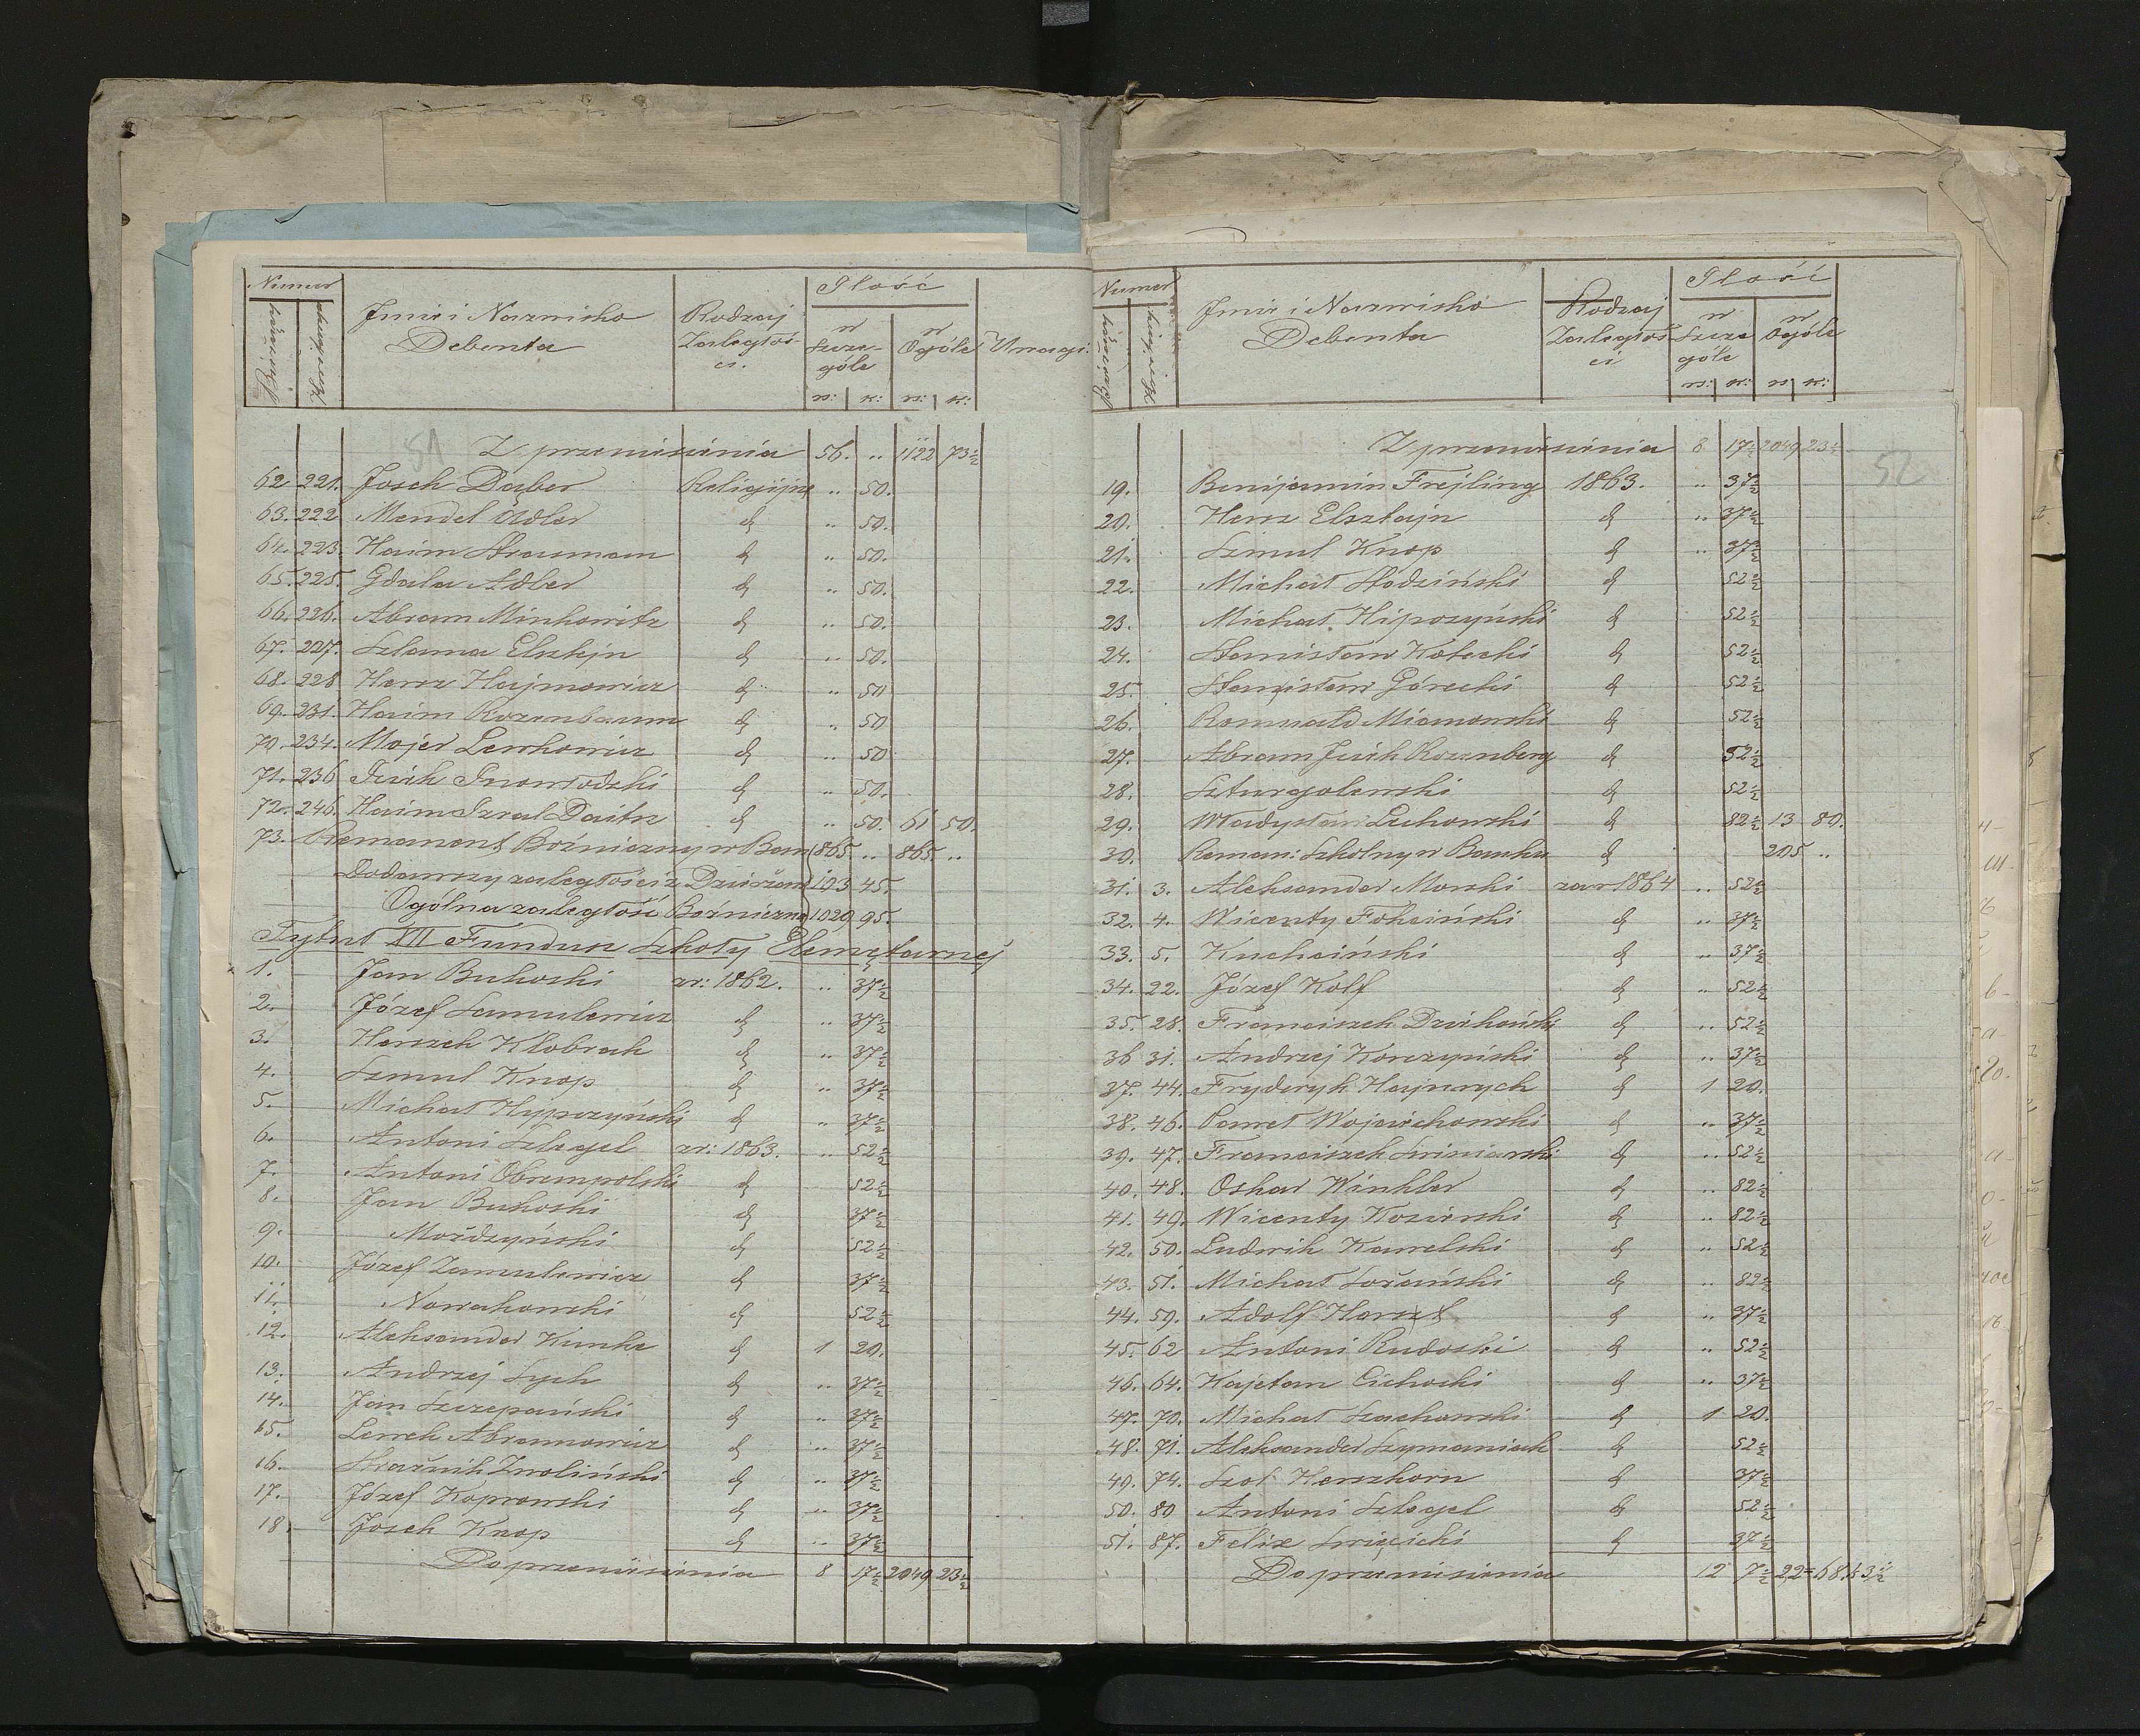 Numer
Imie i Nazwisko
Debenta
Rodzaj
Zaległoś-
ci.
Ilość
w Szcze-
góle
w Ogóle
Uwagi
rs: k: rs: k:
51
Z przeniesienia 56. „ 1122 73½
62 221. Josek Daber Religijne „ 50.
63. 222 Mendel Adler d „ 50.
64. 223. Haim Strasman d „ 50.
65. 225. Gdala Adler d „ 50.
66. 226. Abram Minkowitz d „ 50.
67. 227. Szlama Elsztejn d „ 50.
68. 228 Hersz Hajmowicz d „ 50
69. 231. Haim Rozenbaum d „ 50
70. 234. Majer Lewkowicz d „ 50
71. 236 Izrik Inowłodzki d „ 50.
72. 246. Haim Izral Daitz d „ 50. 61 50.
73. Remanent Bóźniczny w Ban 865. „ 865 „
Dodawszy zaległości z Dzierżaw 103 45.
Ogólna zaległość Bóźniczna 1029 95.
Tytuł VII Fundusz Szkoły Elemętarnej
1. Jan Bukoski zr: 1862. „ 37½
2. Józef Samulewicz d „ 37½
3. Herszek Kłobrak d „ 37½
4. Szmul Knop d „ 37½
5. Michał Hypszyński d „ 37½
6. Antoni Szlegel zr: 1863. „ 52½
7. Antoni Obrempolski d 52½
8. Jan Bukoski d 37½
9. Możdzyński d 52½
10. Józef Zamulewicz d 37½
11. Nowakowski d 52½
12. Aleksander Kimke d 1 20.
13. Andrzej Lych d „ 37½
14. Jan Szczepański d „ 37½
15. Lewek Abramowicz d „ 37½
16. Strażnik Zwoliński d „ 37½
17. Józef Koprowski d „ 37½
18. Josek Knop d „ 37½
Do przeniesienia 8 17½ 2049 23½
Numer
Imie i Nazwisko
Debenta
Rodzaj
Zaległoś
ci
Ilość
w Szcze
góle
w Ogóle
rs: k: rs: k:
52
Z przeniesienia 8 17½ 2049 23½
19. Benijamin Frejling 1863. „ 37½
20. Hersz Elsztajn d „ 37½
21. Szmul Knop d „ 37½
22. Michał Słodziński d 52½
23. Michał Hipszyński d 52½
24. Stanisław Kotecki d 52½
25. Stanisław Górecki d 52½
26. Romuald Mianowski d 52½
27. Abram Jcik Rozenberg d 52½
28. Szturgolewski d 52½
29. Władysław Lukowski d 82½ 13 80.
30. Reman: Szkolny w Banku d 205 „
31. 3. Aleksander Morski zar 1864 „ 52½
32. 4. Wicenty Fokciński d „ 37½
33. 5. Kuchciński d „ 37½
34. 22. Józef Kolf d „ 52½
35. 28. Franciszek Dzikoński d „ 52½
36 31. Andrzej Korczyński d „ 37½
37. 44. Fryderyk Hajnrych d 1 20.
38. 46. Paweł Wojciechowski d „ 37½
39. 47. Franciszek Świniarski d „ 52½
40. 48. Oskar Winkler d „ 82½
41. 49. Wicenty Kozierski d „ 82½
42. 50. Ludwik Kawelski d „ 52½
43. 51. Michał Łożański d „ 82½
44. 59. Adolf Herszt d „ 37½
45. 62 Antoni Rudoski d „ 52½
46. 64. Kajetan Cichocki d „ 37½
47. 70. Michał Szachowski d 1 20.
48. 71. Aleksander Szymaniak d 52½
49. 74. Szol Herszkorn d 37½
50. 80 Antoni Szlegel d 52½
51. 87. Felix Święcicki d 37½
Do przeniesienia 12 7½